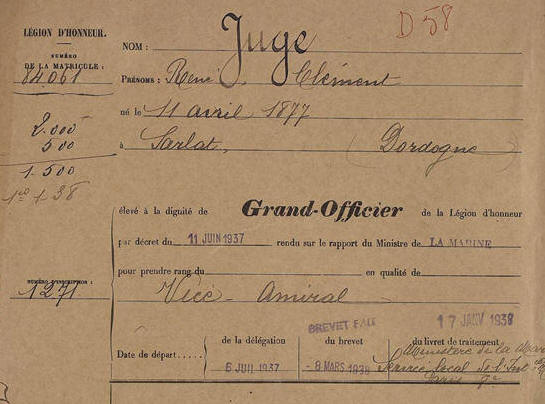 D 58
LÉGION D'HONNEUR.
NUMÉRO
DE LA MATRICULE :
84.061
NOM : Juge
PRÉNOMS : René, Clément
né le 11 avril 1877
à Sarlat, (Dordogne
2.000
500
1.500
1 38
élevé à la dignité de Grand-Officier de la Légion d'honneur
par décret du 11 JUIN 1937 rendu sur le rapport du Ministre de LA MARINE
pour prendre rang du en qualité de
NUMÉRO D'INSCRIPTION :
1271
Vice-Amiral
BREVET FAIT
17 JANV 1938
de la délégation du brevet du livret de traitement
Date de départ.....
6 JUIL 1937
- 8 MARS 1938
Ministère de la
Service local de l'Int
Paris